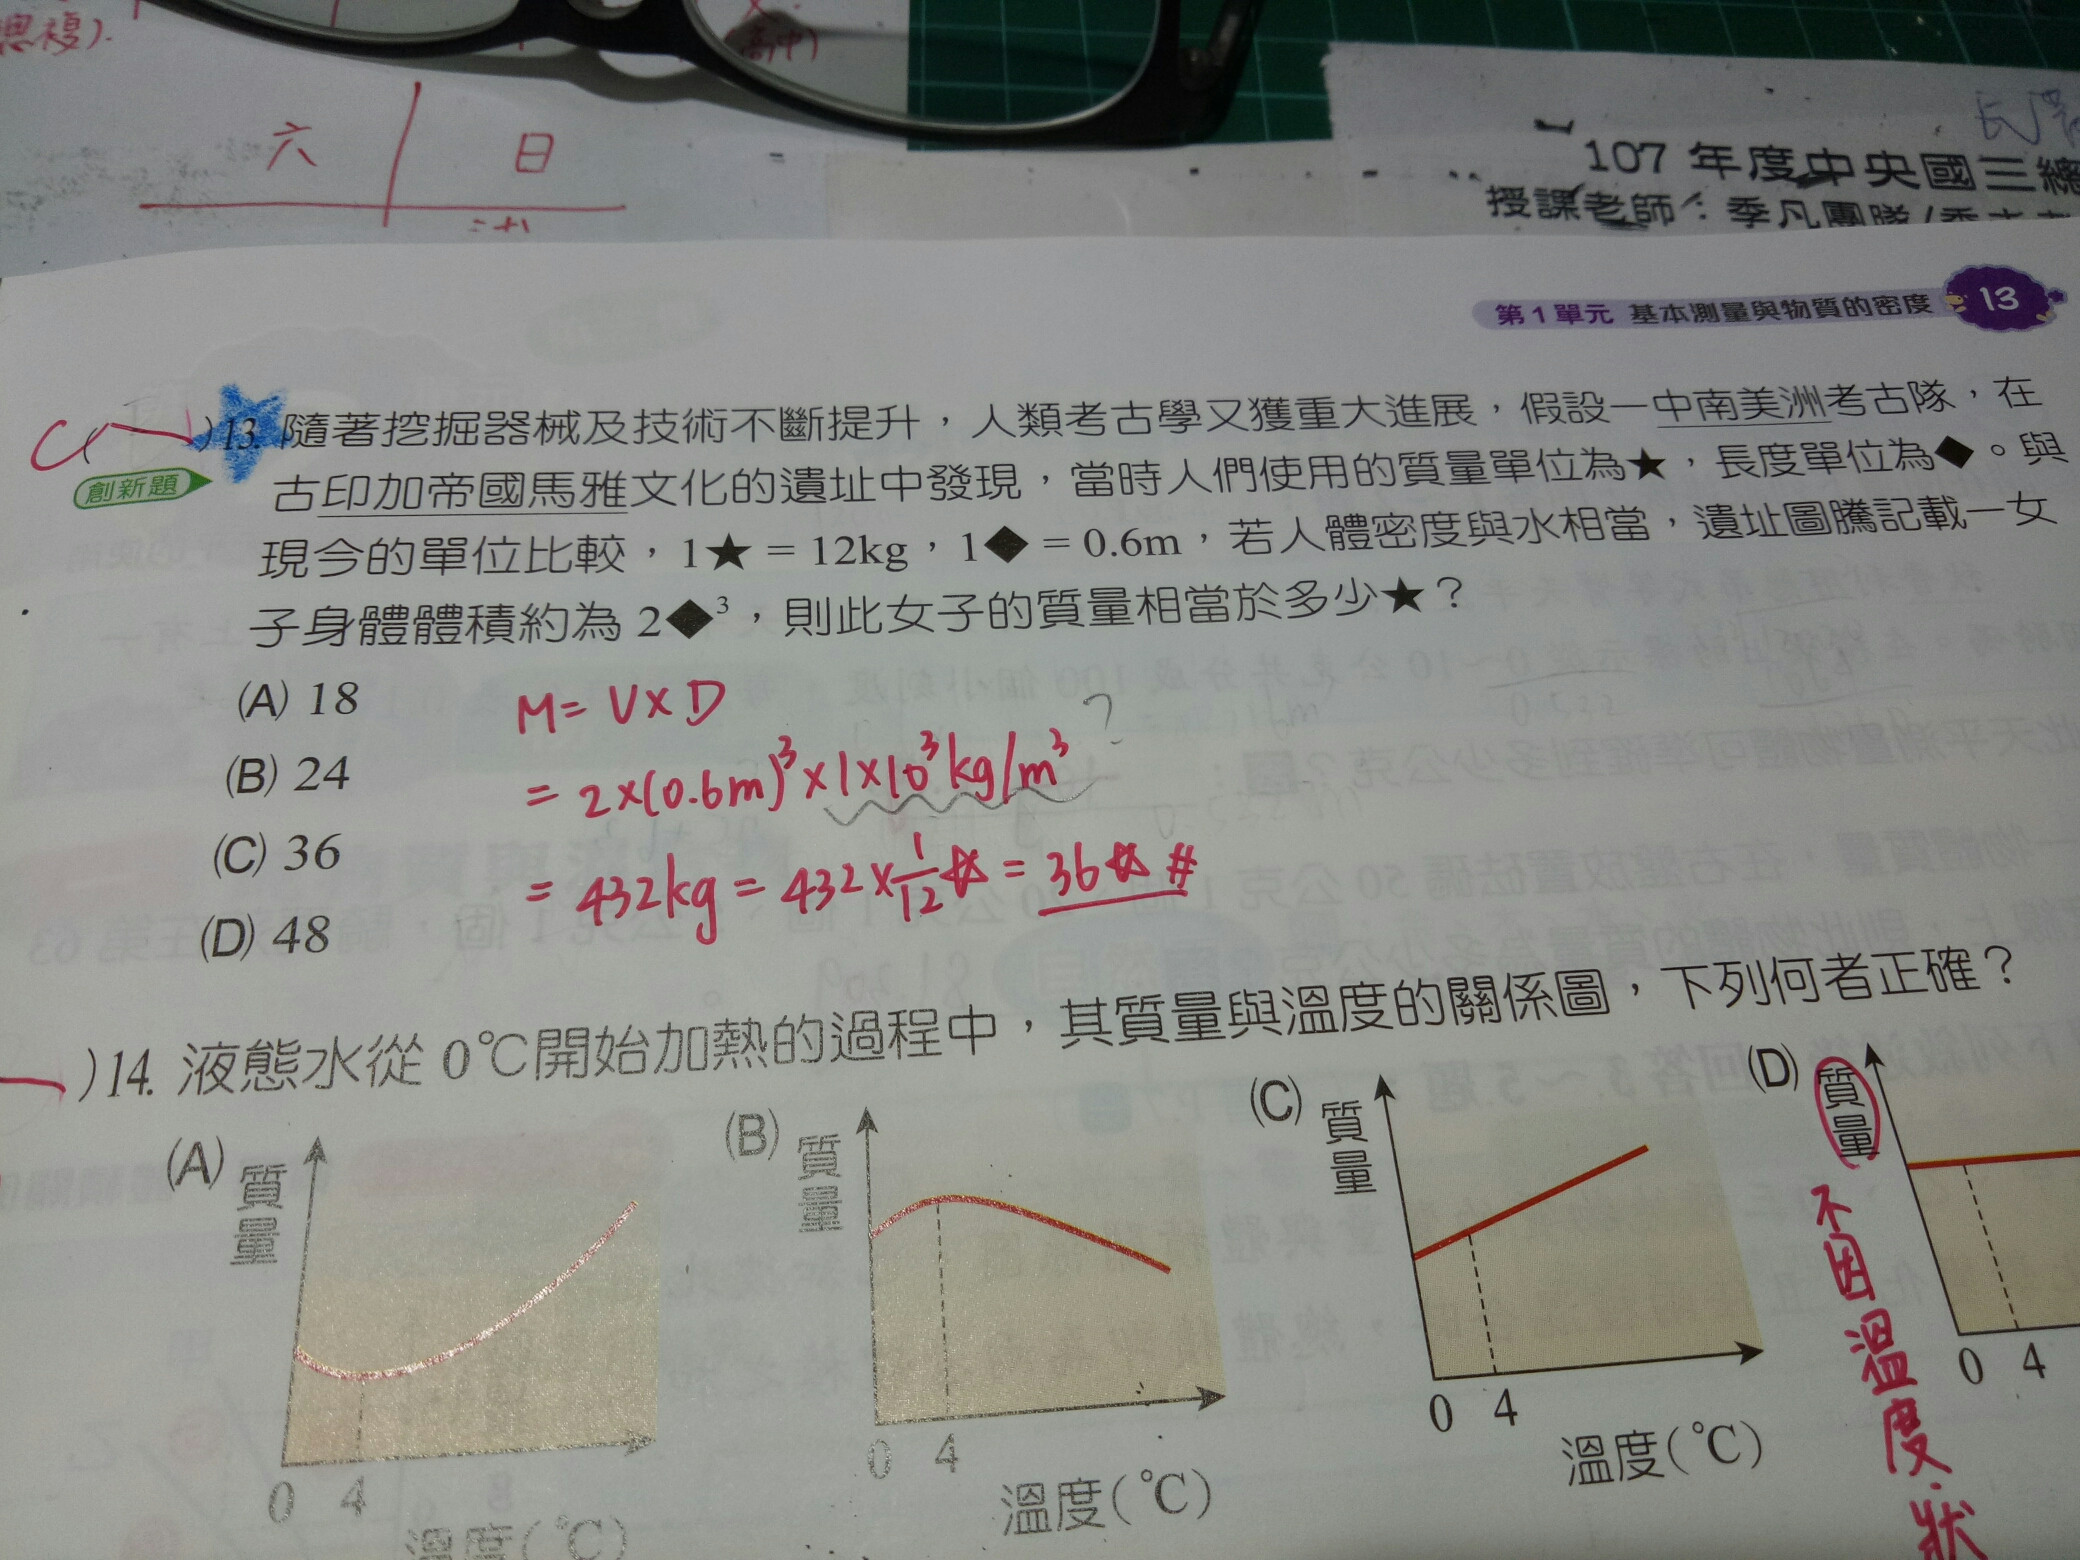 (高中)
六 日
107年度中央國三總
授課老師：季凡團隊/
第1單元 基本測量與物質的密度 13
創新題
)13. 隨著挖掘器械及技術不斷提升，人類考古學又獲重大進展，假設一中南美洲考古隊，在
古印加帝國馬雅文化的遺址中發現，當時人們使用的質量單位為★，長度單位為◆。與
現今的單位比較，1★＝12kg，1◆＝0.6m，若人體密度與水相當，遺址圖騰記載一女
子身體體積約為 2◆³，則此女子的質量相當於多少★？
(A) 18
(B) 24
(C) 36
(D) 48
M = V × D
= 2×(0.6m)³×1×10³kg/m³ ?
= 432kg = 432×1/12☆ = 36☆ #
)14. 液態水從 0℃開始加熱的過程中，其質量與溫度的關係圖，下列何者正確？
(A) 質量 0 4 溫度(℃)
(B) 質量 0 4 溫度(℃)
(C) 質量 0 4 溫度(℃)
(D) 質量 0 4
不因溫度.狀